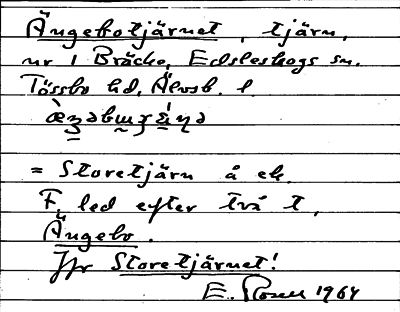 Ängebotjärnet, tjärn,
nr 1 Bräcke, Edsleskogs sn.
Tössbo hd, Älvsb. l.
= Storetjärn å ek.
F. led efter två t,
Ängebo.
Jfr Storetjärnet!
E. Rosell 1964